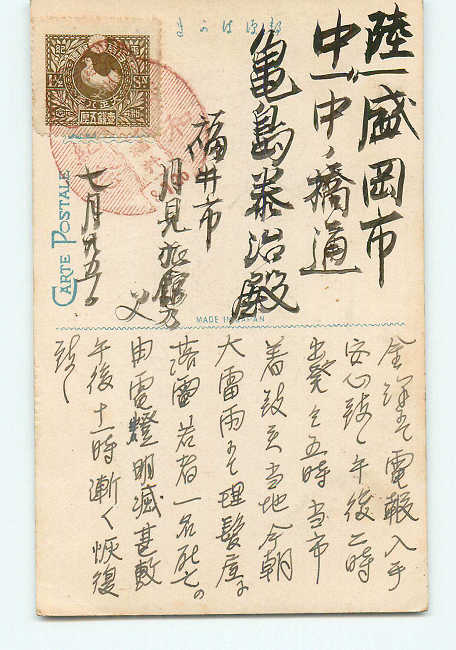 きかは便郵
陸中盛岡市
中ノ橋通
亀島泰治殿
福井市
月見旅館方
父
七月九日
CARTE POSTALE
MADE IN JAPAN
金澤にて電報入手
安心致し午後二時
出発し五時当市
着致候当地今朝
大雷雨にて理髪店に
落雷若者一名死亡の
由電燈明滅甚敷
午後十一時漸く恢復
致し